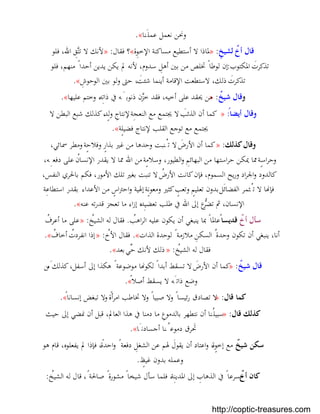 ونحن نعمل عملَنا».
قال أخٌ لشيخٍ: «لماذا لا أستطيع مساكنة الإخوةِ»؟ فقال: «لأنك لا تتَّقِ الله، فلو
تذكرتَ المكتوبَ إن لوطاً تخلص من بين أهلِ سدوم، لأنه لم يكن يدين أحداً منهم، فلو
تذكرتَ ذلك، لاستطعت الإقامة أينما شئتَ، حتى ولو بين الوحوشِ».
وقال شيخٌ: «من يحقد على أخيه، فقد خزَّن ذنوبَه في ذاتِه وختم عليها».
وقال أيضاً: « كما أن الذئبَ لا يجتمع مع النعجةِ لإنتاجِ ولدٍ، كذلك شبع البطن لا
يجتمع مع توجع القلب لإنتاج فضيلة».
وقال كذلك: « كما أن الأرضَ لا تُنبت وحدها من غيرِ بذارٍ وفلاحةٍ ومطرٍ سمائي،
وحراسةٍ مما يمكن حراستها من البهائم والطيور، وسلامةٍ من الله مما لا يقدر الإنسان على دفعه،
كالدود والجراد وريح السموم، فإن كانت الأرضُ لا تنبت بغير تلك الأمور، فكم بالحري النفس،
فإنها لا تُثمر الفضائل بدون تعليم وتعبٍ كثيرٍ ومعونةٍ إلهية واحتراسٍ من الأعداء، بقدر استطاعةِ
الإنسان، ثم تضرُّعٍ إلى الله في طلب تعضيدِه إزاء ما تعجز قدرته عنه».
سأل أخٌ قديساً عالماً بما ينبغي أن يكون عليه الراهبُ. فقال له الشيخُ: «على ما أعرفُ
أنا، ينبغي أن تكون وحدةُ السكنِ ملازمةً لوحدة الذات». فقال الأخُ: «إذا انفردتُ أخافُ».
فقال له الشيخُ: «ذلك لأنك حيٌّ بعد».
قال شيخٌ: «كما أن الأرضَ لا تسقط أبداً لكونها موضوعةً هكذا إلى أسفل، كذلك مَن
وضع ذاتَه لا يسقط أصلاً».
كما قال: «لا تصادق رئيساً ولا صبياً ولا تخاطب امرأةً ولا تبغض إنساناً».
كذلك قال: «سبيلُنا أن نتطهر بالدموعِ ما دمنا في هذا العالمِ، قبل أن نمضي إلى حيث
تحرق دموعُنا أجسادَنا».
سكن شيخٌ مع إخوةٍ، واعتاد أن يقولَ لهم عن الشغل دفعةً واحدةً، فإذا لم يفعلوه، قام هو
وعمله بدون غيظٍ.
كان أخٌ مسرعاً في الذهاب إلى المدينة، فلما سأل شيخاً مشورةً صالحةً، قال له الشيخُ:
http://coptic-treasures.com